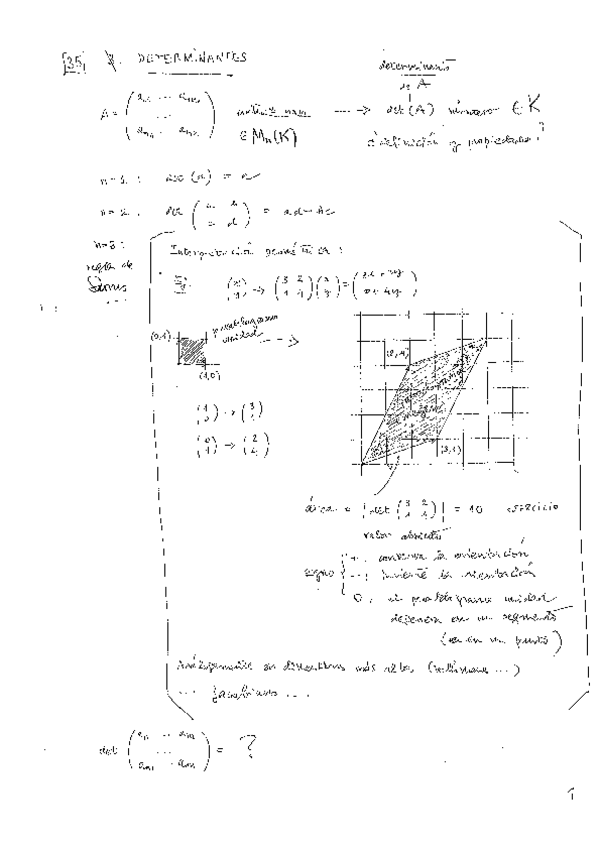 35 8. DETERMINANTES
determinante
de A
A = ( a₁₁ ... a₁ₙ
...
aₙ₁ ... aₙₙ ) matriz nxn ∈ Mₙ(K) ---> det(A) número ∈ K
definición y propiedades?
n=1 : det (a) = a
n=2 : det ( a b
c d ) = ad-bc
n=3 :
regla de
Sarrus
...
Interpretación geométrica :
Ej. (x y) → (3 2
1 4) (x y) = (3x+2y
x+4y)
(0,1) paralelogramo
unidad --->
(1,0)
(2,4)
imagen
(3,1)
(1 0) → (3 1)
(0 1) → (2 4)
área = |det (3 2
1 4)| = 10 ejercicio
valor absoluto
signo { + : conserva la orientación
- : invierte la orientación
0 : el paralelogramo unidad
degenera en un segmento
(o en un punto)
Análogamente en dimensiones más altas (volúmenes ...)
... Jacobiano ...
det ( a₁₁ ... a₁ₙ
...
aₙ₁ ... aₙₙ ) = ?
1